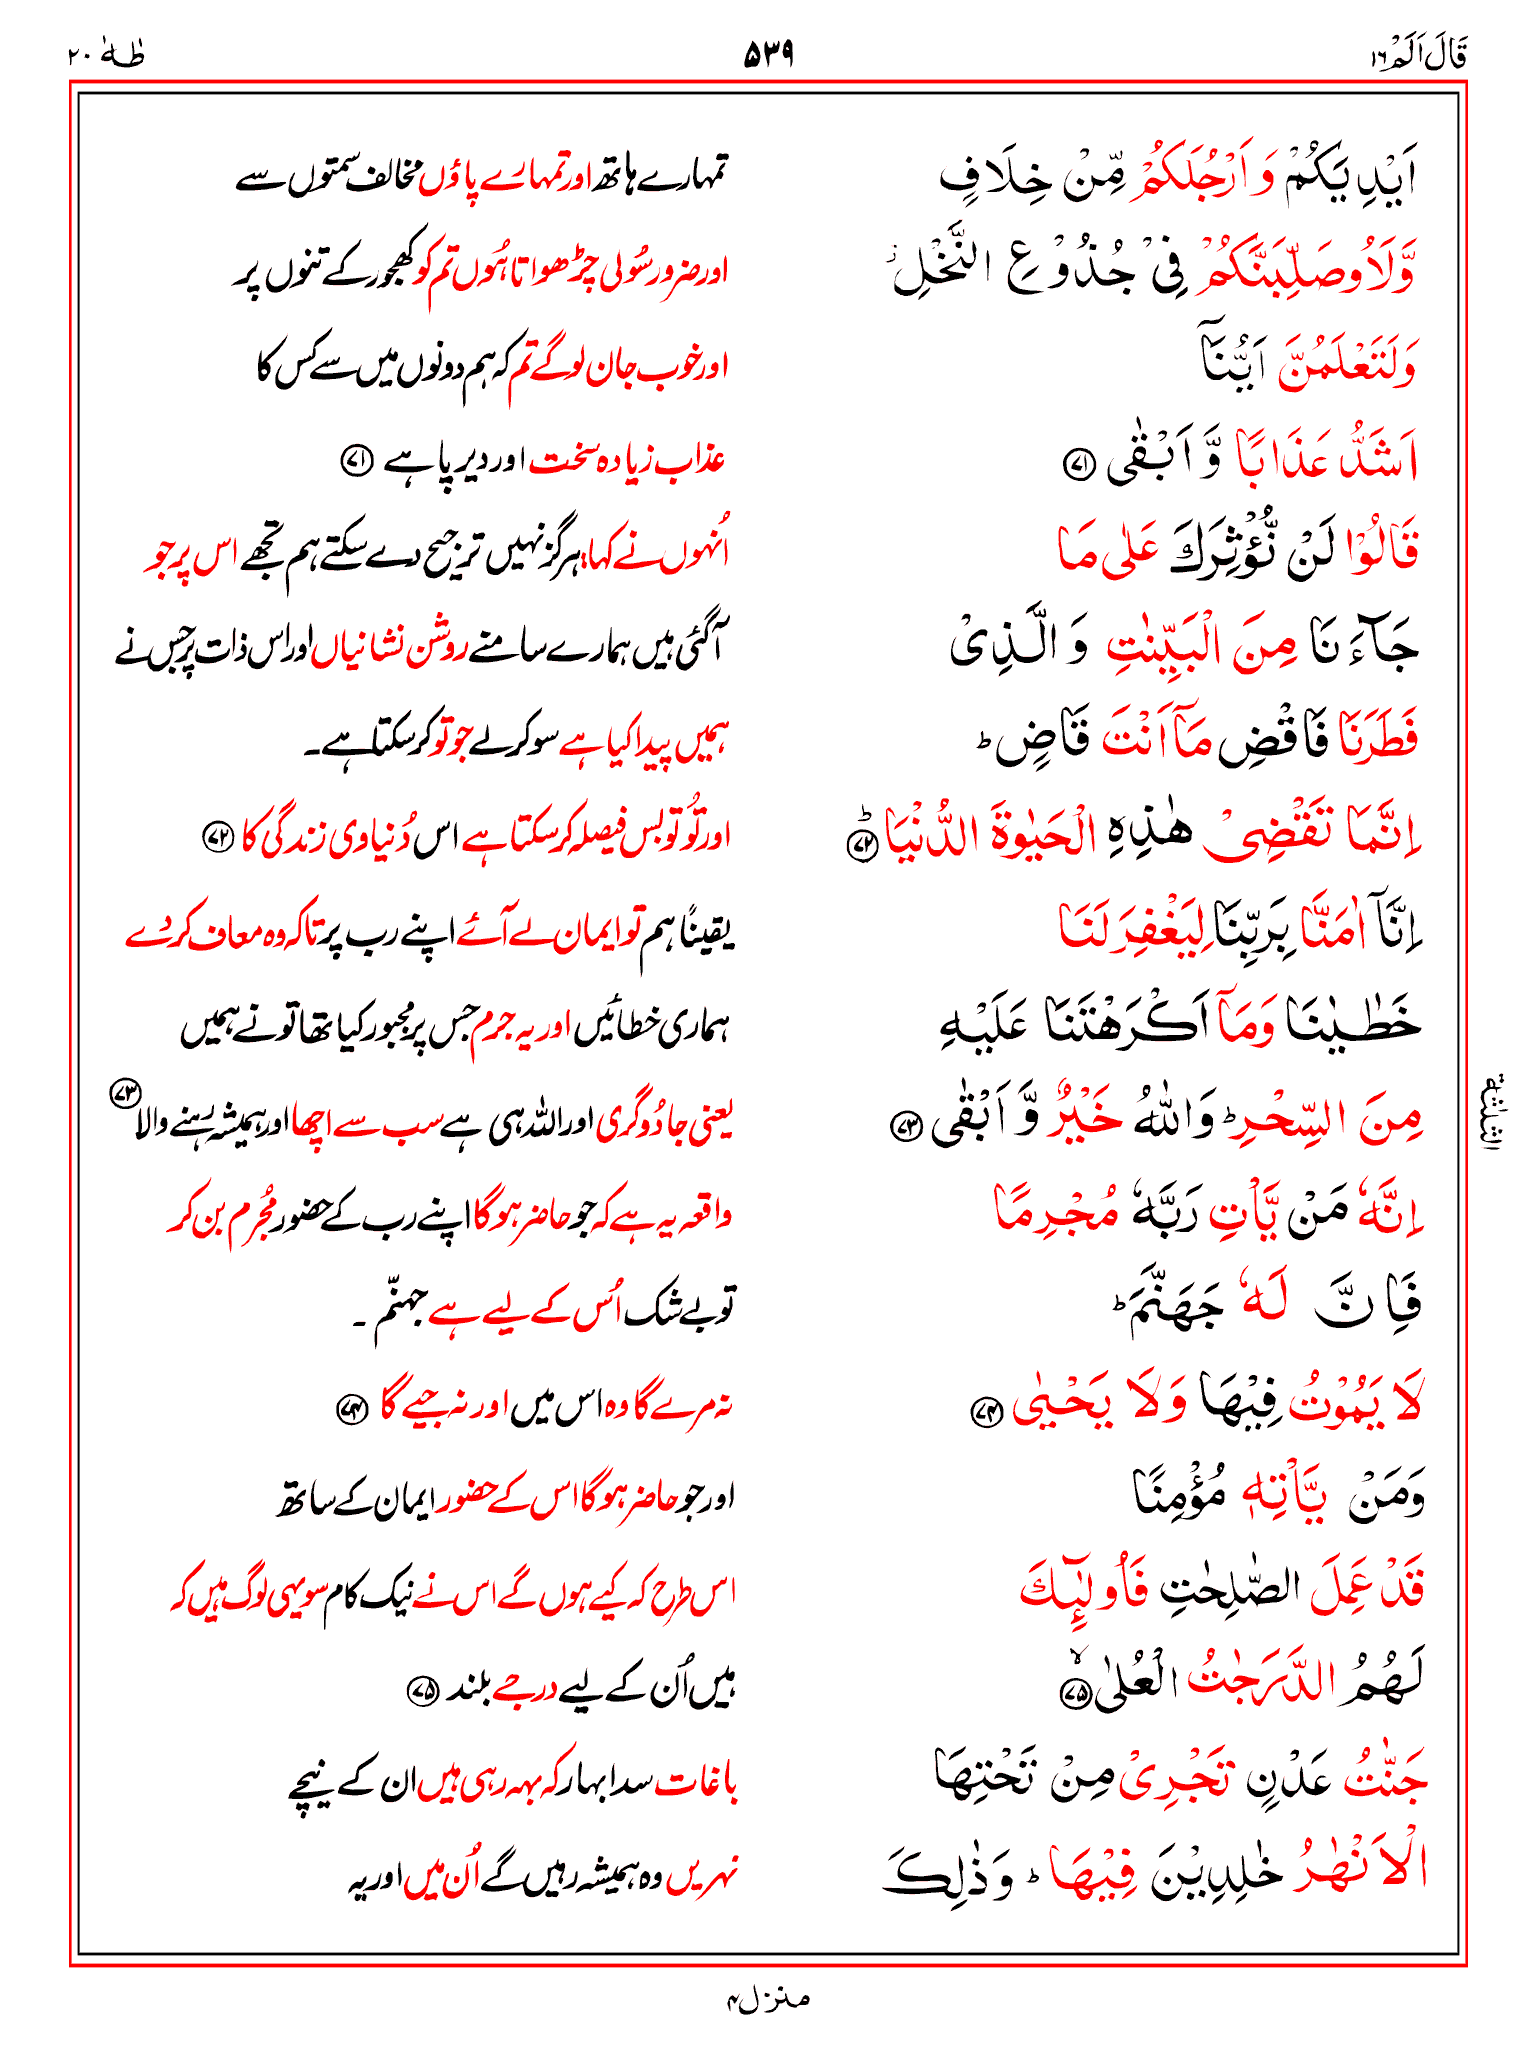 قَالَ اَلَمْ ۱۶ ۵۳۹ طٰهٰ ۲۰
اَیْدِیَكُمْ وَ اَرْجُلَكُمْ مِّنْ خِلَافٍ تمہارے ہاتھ اور تمہارے پاؤں مخالف سمتوں سے
وَّلَاُوصَلِّبَنَّكُمْ فِیْ جُذُوْعِ النَّخْلِ ز اور ضرور سُولی چڑھواتا ہُوں تم کو کھجور کے تنوں پر
وَلَتَعْلَمُنَّ اَیُّنَاۤ اور خوب جان لو گے تم کہ ہم دونوں میں سے کس کا
اَشَدُّ عَذَابًا وَّ اَبْقٰی ﴿۷۱﴾ عذاب زیادہ سخت اور دیرپا ہے ﴿۷۱﴾
قَالُوْا لَنْ نُّؤْثِرَكَ عَلٰی مَا اُنہوں نے کہا: ہرگز نہیں ترجیح دے سکتے ہم تجھے اس پر جو
جَآءَنَا مِنَ الْبَیِّنٰتِ وَ الَّذِیْ آ گئی ہیں ہمارے سامنے روشن نشانیاں اور اس ذات پر جس نے
فَطَرَنَا فَاقْضِ مَاۤ اَنْتَ قَاضٍ ؕ ہمیں پیدا کیا ہے سو کر لے جو تو کر سکتا ہے۔
اِنَّمَا تَقْضِیْ هٰذِهِ الْحَیٰوةَ الدُّنْیَا ؕ﴿۷۲﴾ اور تُو تو بس فیصلہ کر سکتا ہے اس دُنیاوی زندگی کا ﴿۷۲﴾
اِنَّاۤ اٰمَنَّا بِرَبِّنَا لِیَغْفِرَ لَنَا یقیناً ہم تو ایمان لے آئے اپنے رب پر تاکہ وہ معاف کر دے
خَطٰیٰنَا وَمَاۤ اَكْرَهْتَنَا عَلَیْهِ ہماری خطائیں اور یہ جرم جس پر مجبور کیا تھا تو نے ہمیں
مِنَ السِّحْرِ ؕ وَاللّٰهُ خَیْرٌ وَّ اَبْقٰی ﴿۷۳﴾ یعنی جادُوگری اور اللہ ہی ہے سب سے اچھا اور ہمیشہ رہنے والا ﴿۷۳﴾
الثلٰثة
اِنَّهٗ مَنْ یَّاْتِ رَبَّهٗ مُجْرِمًا واقعہ یہ ہے کہ جو حاضر ہو گا اپنے رب کے حضور مُجرم بن کر
فَاِنَّ لَهٗ جَهَنَّمَ ؕ تو بے شک اُس کے لیے ہے جہنّم ۔
لَا یَمُوْتُ فِیْهَا وَلَا یَحْیٰی ﴿۷۴﴾ نہ مرے گا وہ اس میں اور نہ جیے گا ﴿۷۴﴾
وَمَنْ یَّاْتِهٖ مُؤْمِنًا اور جو حاضر ہو گا اس کے حضور ایمان کے ساتھ
قَدْ عَمِلَ الصّٰلِحٰتِ فَاُولٰٓئِكَ اس طرح کہ کیے ہوں گے اس نے نیک کام سو یہی لوگ ہیں کہ
لَهُمُ الدَّرَجٰتُ الْعُلٰی ۙ﴿۷۵﴾ ہیں اُن کے لیے درجے بلند ﴿۷۵﴾
جَنّٰتُ عَدْنٍ تَجْرِیْ مِنْ تَحْتِهَا باغات سدا بہار کہ بہہ رہی ہیں ان کے نیچے
الْاَنْهٰرُ خٰلِدِیْنَ فِیْهَا ؕ وَذٰلِكَ نہریں وہ ہمیشہ رہیں گے اُن میں اور یہ
منزل ۴